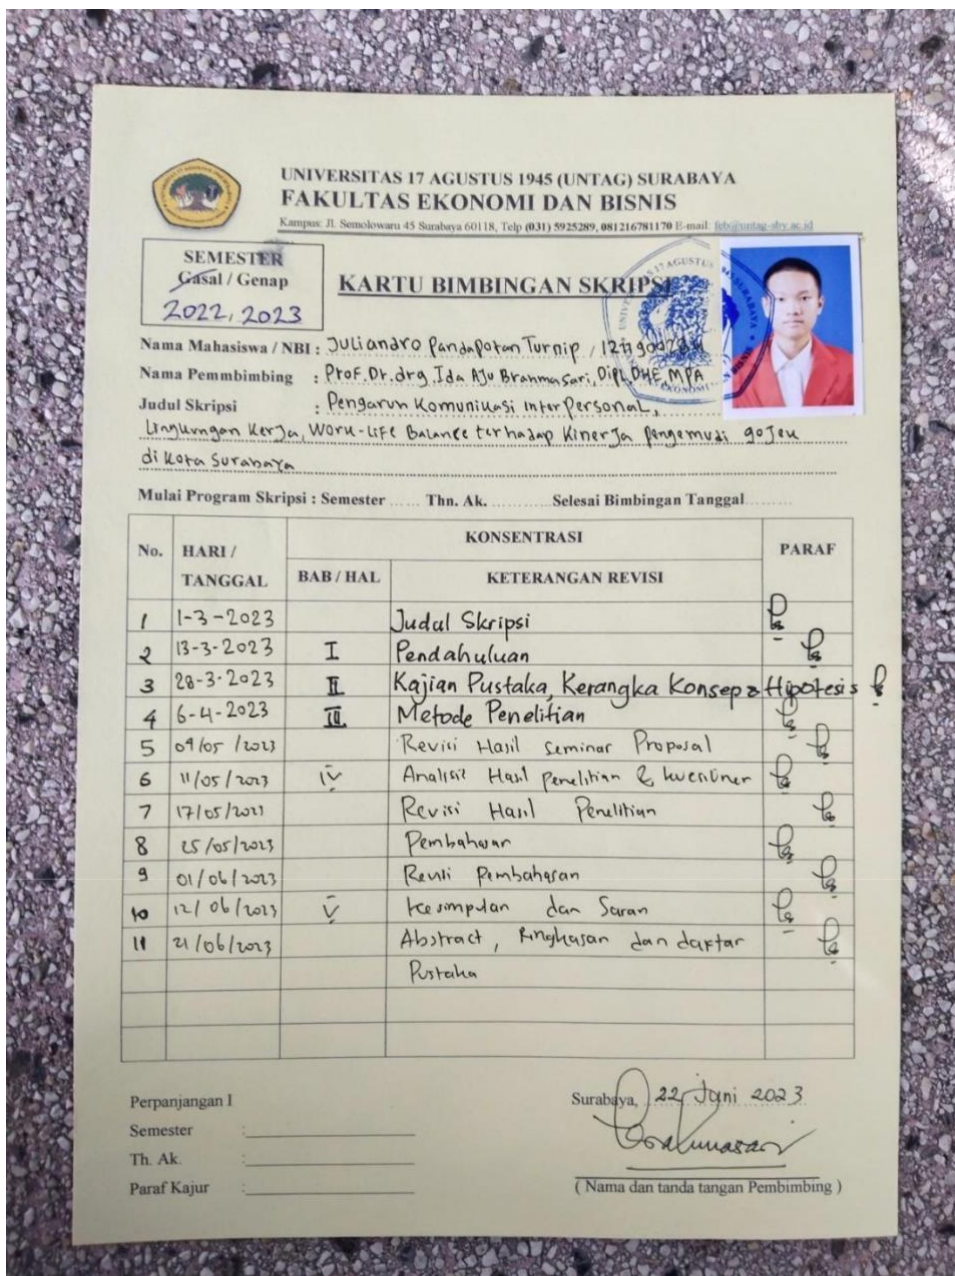 UNIVERSITAS 17 AGUSTUS 1945 (UNTAG) SURABAYA
FAKULTAS EKONOMI DAN BISNIS
Kampus: Jl. Semolowaru 45 Surabaya 60118, Telp (031) 5925289, 081216781170 E-mail: feb@untag-sby.ac.id
SEMESTER
Gasal / Genap
2022, 2023
KARTU BIMBINGAN SKRIPSI
Nama Mahasiswa / NBI : Juliandro Pandapotan Turnip /
Nama Pemmbimbing : Prof. Dr. drg. Ida Aju Brahmasari, Dipl, DHE, MPA
Judul Skripsi : Pengaruh Komunikasi InterPersonal,
Lingkungan Kerja, Work-Life Balance terhadap Kinerja Pengemudi gojek
di Kota Surabaya
Mulai Program Skripsi : Semester ...... Thn. Ak. .......... Selesai Bimbingan Tanggal ........
No. HARI / TANGGAL KONSENTRASI PARAF
BAB / HAL KETERANGAN REVISI
1 1-3-2023 Judul Skripsi
2 13-3-2023 I Pendahuluan
3 28-3-2023 II Kajian Pustaka, Kerangka Konsep & Hipotesis
4 6-4-2023 III Metode Penelitian
5 04/05/2023 Revisi Hasil Seminar Proposal
6 11/05/2023 IV Analisis Hasil Penelitian & kuesioner
7 17/05/2023 Revisi Hasil Penelitian
8 25/05/2023 Pembahasan
9 01/06/2023 Revisi Pembahasan
10 12/06/2023 V Kesimpulan dan Saran
11 21/06/2023 Abstract, Ringkasan dan daftar
Pustaka
Perpanjangan I
Semester :
Th. Ak. :
Paraf Kajur :
Surabaya, 22 Juni 2023
( Nama dan tanda tangan Pembimbing )